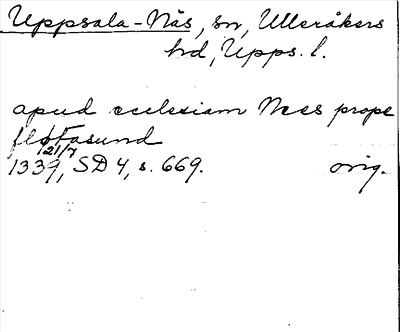 Uppsala-Näs, sn, Ulleråkers
hd, Upps. l.
apud ecclesiam Næs prope
Fasund
21/7
1339, SD 4, s. 669. orig.